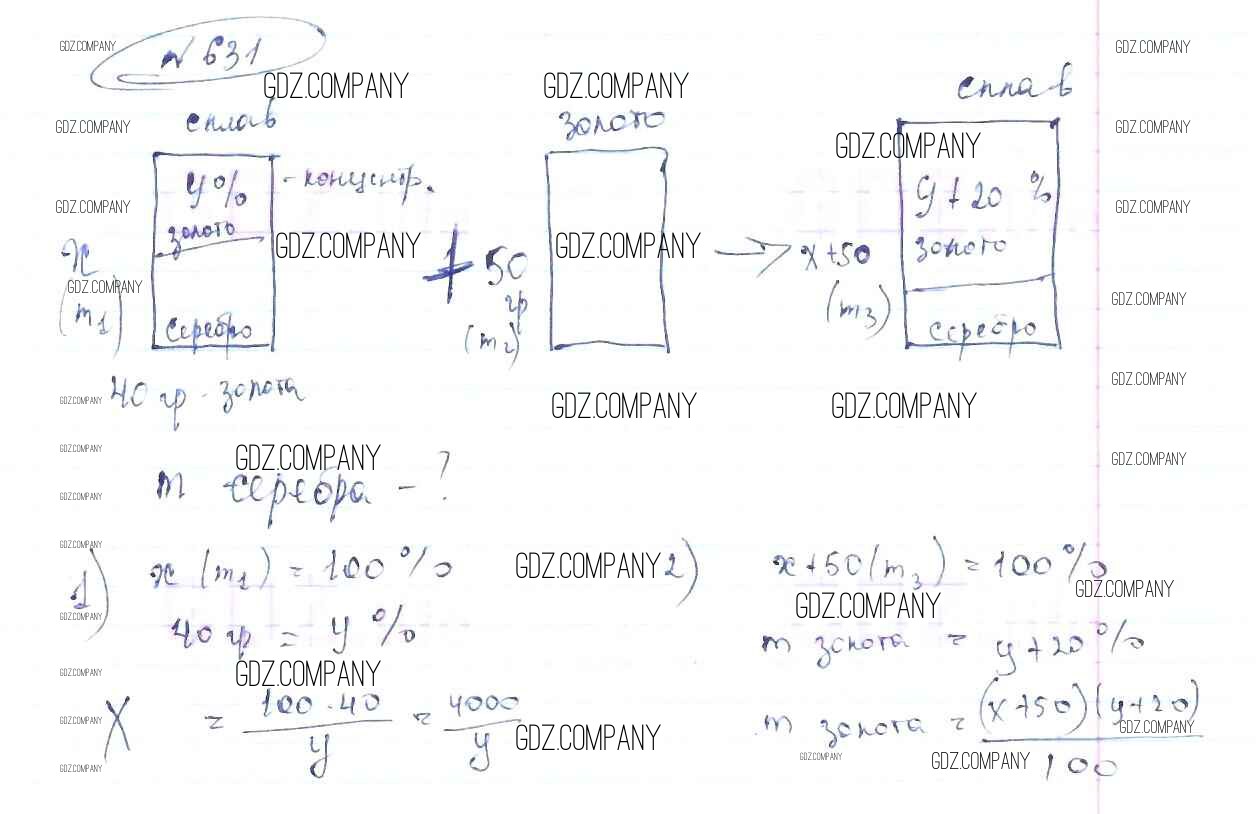 GDZ.COMPANY
№ 631
GDZ.COMPANY
GDZ.COMPANY
GDZ.COMPANY
GDZ.COMPANY
сплав
золото
сплав
GDZ.COMPANY
GDZ.COMPANY
GDZ.COMPANY
y% - концентр.
y + 20 %
GDZ.COMPANY
GDZ.COMPANY
золото
золото
x
GDZ.COMPANY
+ 50
GDZ.COMPANY
→ x+50
GDZ.COMPANY
гр
(m₁)
(m₂)
(m₃)
GDZ.COMPANY
серебро
серебро
GDZ.COMPANY
GDZ.COMPANY
40 гр - золота
GDZ.COMPANY
GDZ.COMPANY
GDZ.COMPANY
GDZ.COMPANY
GDZ.COMPANY
GDZ.COMPANY
m серебра - ?
GDZ.COMPANY
1) x (m₁) = 100 %
GDZ.COMPANY
2) x+50 (m₃) = 100 %
GDZ.COMPANY
GDZ.COMPANY
GDZ.COMPANY
40 гр = y %
m золота = y + 20 %
GDZ.COMPANY
GDZ.COMPANY
x = 100 · 40 / y = 4000 / y
m золота = (x+50)(y+20) / 100
GDZ.COMPANY
GDZ.COMPANY
GDZ.COMPANY
GDZ.COMPANY
GDZ.COMPANY
GDZ.COMPANY